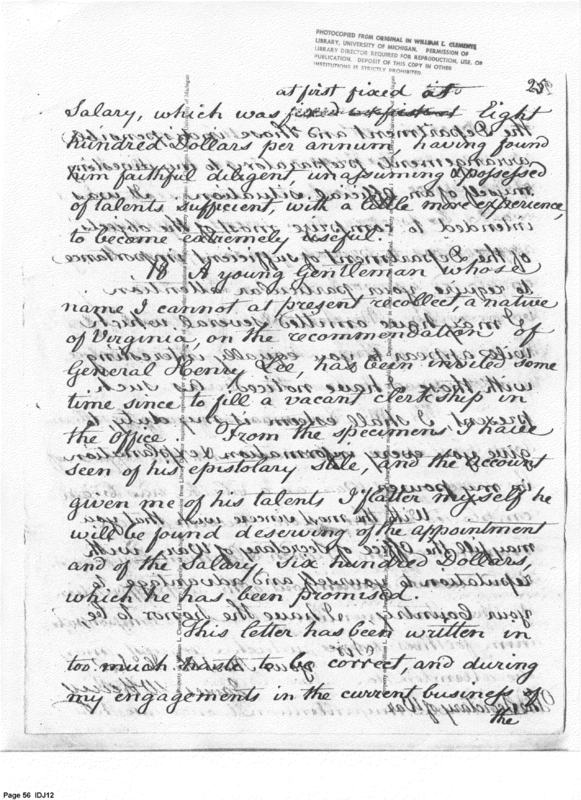 PHOTOCOPIED FROM ORIGINAL IN WILLIAM L. CLEMENTS
LIBRARY, UNIVERSITY OF MICHIGAN. PERMISSION OF
LIBRARY DIRECTOR REQUIRED FOR REPRODUCTION, USE, OR
PUBLICATION. DEPOSIT OF THIS COPY IN OTHER
INSTITUTIONS IS STRICTLY PROHIBITED
25
at first fixed at
Salary, which was fixed at first at Eight
hundred Dollars per annum, having found
him faithful diligent unassuming & possessed
of talents sufficient, with a little more experience,
to become extremely useful.
A young Gentleman whose
name I cannot at present recollect, a native
of Virginia, on the recommendation of
General Henry Lee, has been invited some
time since to fill a vacant clerkship in
the office. From the specimens I have
seen of his epistolary stile, and the account
given me of his talents I flatter myself he
will be found deserving of the appointment
and of the Salary, six hundred Dollars,
which he has been promised.
This letter has been written in
too much haste to be correct, and during
my engagements in the current business of
the
Page 56 IDJ12